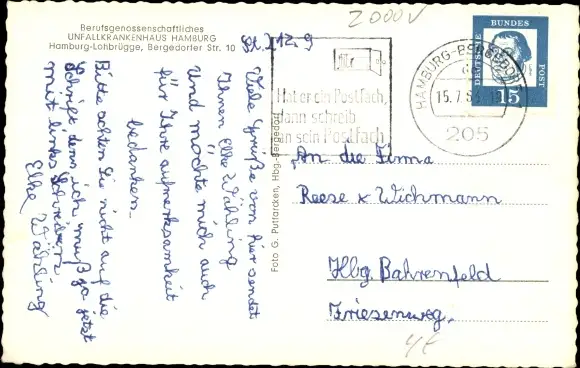 Berufsgenossenschaftliches
UNFALLKRANKENHAUS HAMBURG
Hamburg-Lohbrügge, Bergedorfer Str. 10
St. I 12.9
2000V
Viele Grüße von hier sendet
Ihnen Elke Wähling
Und möchte mich auch
für Ihre aufmerksamkeit
bedanken.
Bitte achten Sie nicht auf die
Schrift denn ich muß ja jetzt
mit links schreiben
Elke Wähling
Foto G. Puttfarcken, Hbg.-Bergedorf
Hat er ein Postfach,
dann schreib
an sein Postfach
HAMBURG-BERGEDORF
15.7.6
205
DEUTSCHE
BUNDES
POST
15
An die Firma
Reese & Wichmann
Hbg. Bahrenfeld
Friesenweg.